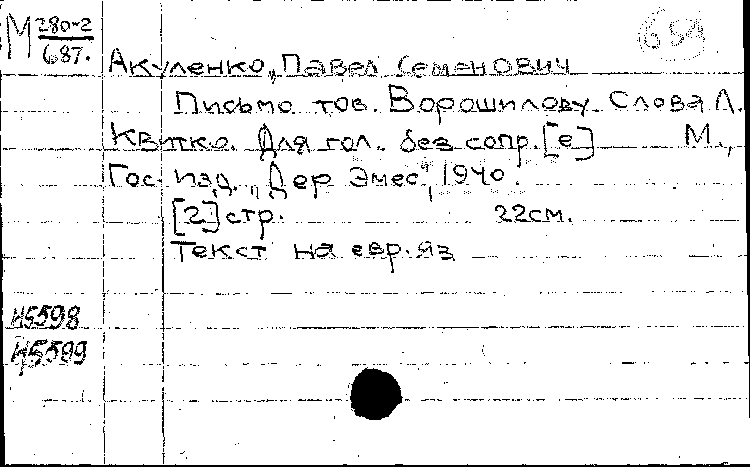 М 280-2
687.
659
Акуленко, Павел Семенович
Письмо тов. Ворошилову. Слова Л.
Квитко. Для гол. без сопр. [e] М.,
Гос. изд. „Дер Эмес", 1940.
[2] стр. 22 см.
Текст на евр. яз.
Н5598
Н5599